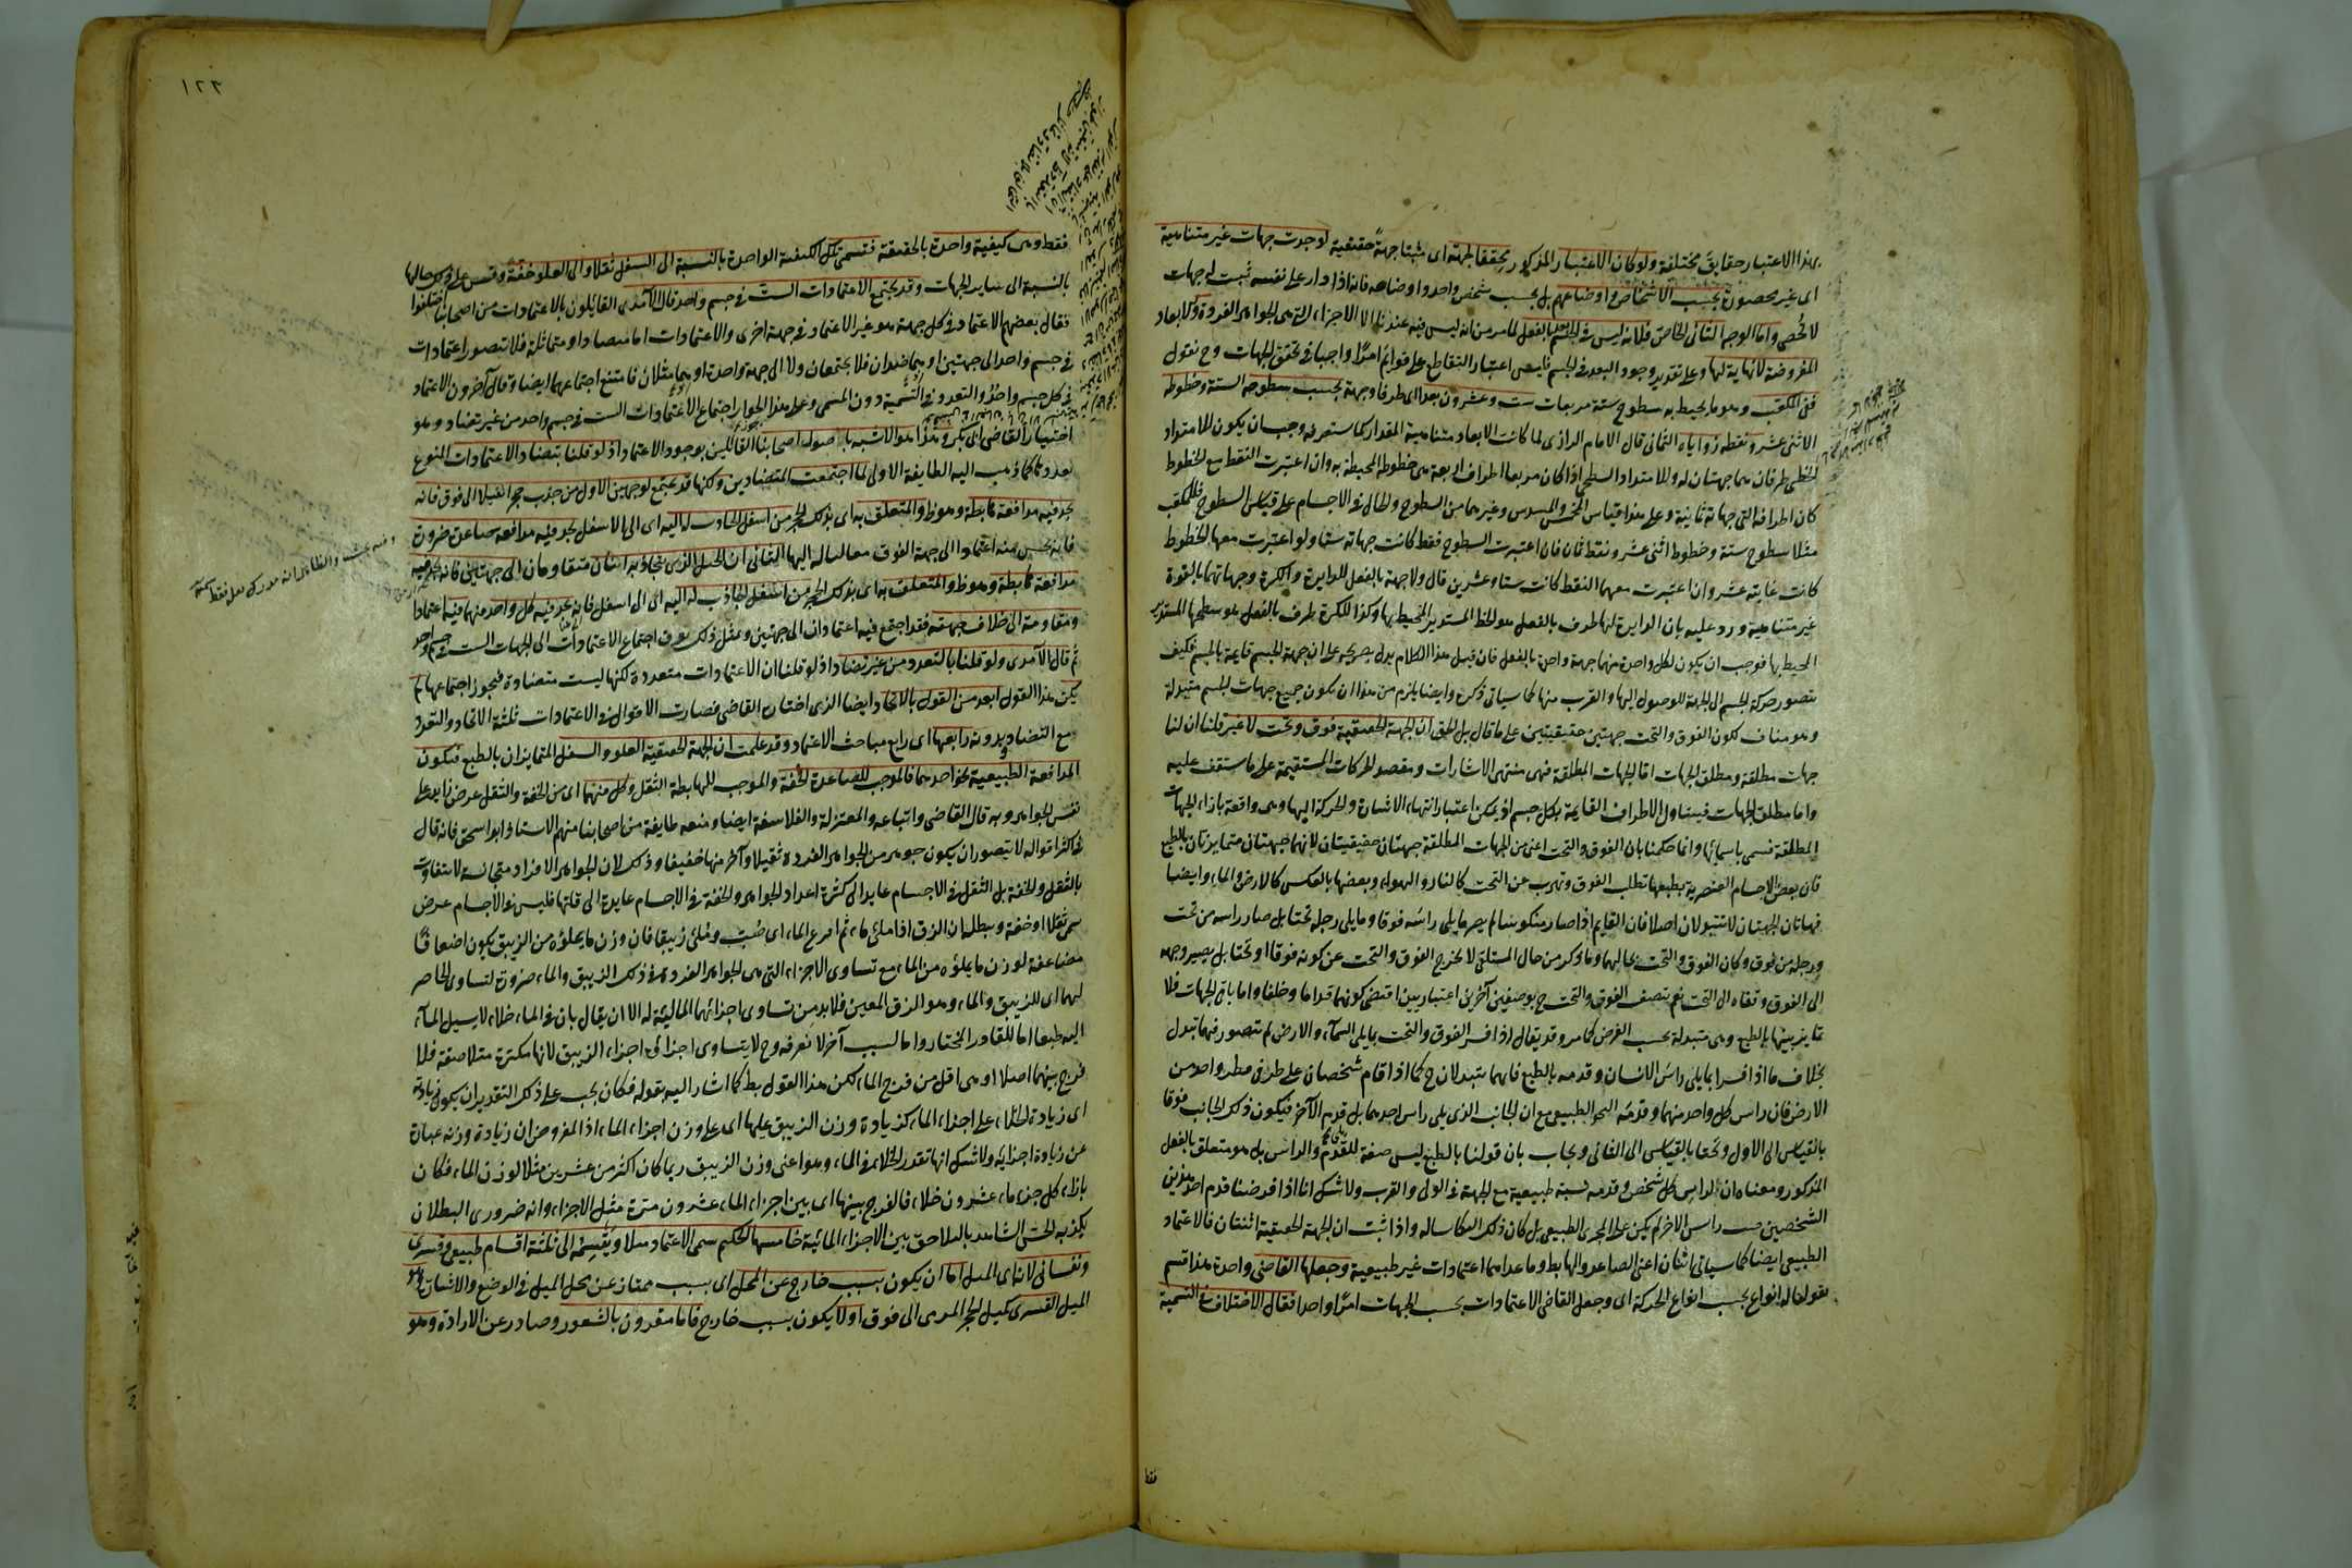 بهذا الاعتبار حقايق مختلفة ولو كان الاعتبار المذكور يحقق الجهة اى مثبتا جهةً حقيقية لوجدت جهات غير متناهية
اى غير محصورة بحسب الاشخاص واوضاعهم بل بحسب شخص واحد واوضاعه فانه اذا دار على نفسه ثبت له جهات
لا تحصى واما الوجه الثانى الخاص فلانه ليس فى الجسم بالفعل لما مر من انه ليس فيه عندنا الا الاجزاء التى هى الجواهر الفردة وكلابعاد
المفروضة لا نهاية لها وعلى تقدير وجود البعد فى الجسم فليس اعتبار التقاطع على قوايم امرًا واجبا فى تحقق الجهات وح نقول
ففى المكعب وهو ما يحيط به سطوح ستة مربعات ست وعشرون بعدا اى طرفا وجهة بحسب سطوحه الستة وخطوطه
الاثنى عشر ونقطه زواياه الثمانى قال الامام الرازى لما كانت الابعاد متناهية المقدار كما ستعرفه وجب ان يكون للامتداد
الخطى طرفان هما جهتان له وللامتداد السطحى اذا كان مربعا اطراف اربعة هى خطوطه المحيطة به وان اعتبرت النقط مع الخطوط
كان اطرافه التى جهاته ثمانية وعلى هذا قياس المخمس والمسدس وغيرهما من السطوح والحال فى الاجسام على قياس السطوح فللمكعب
مثلا سطوح ستة وخطوط اثنى عشر ونقط ثمان فان اعتبرت السطوح فقط كانت جهاته ستا ولو اعتبرت معها الخطوط
كانت ثمانية عشر وان اعتبرت معهما النقط كانت ستا وعشرين قال ولا جهة بالفعل للدايرة والكرة وجهاتهما بالقوة
غير متناهية ورد عليه بان الدايرة لها طرف بالفعل هو الخط المستدير المحيط بها وكذا للكرة طرف بالفعل هو سطحها المستدير
المحيط بها فوجب ان يكون لكل واحدة منهما جهة واحدة بالفعل فان قيل هذا الكلام يدل بصريحه على ان جهة الجسم قايمة بالجسم فكيف
يتصور حركة الجسم الى الجهة للوصول اليها والقرب منها كما سياتى ذكره وايضا يلزم من هذا ان يكون جميع جهات الجسم متبدلة
وهو مناف لكون الفوق والتحت جهتين حقيقيتين على ما قال بل الحق ان الجهة الحقيقية فوق وتحت لا غير قلنا ان لنا
جهات مطلقة ومطلق الجهات اما الجهات المطلقة فهى منتهى الاشارات ومقصد الحركات المستقيمة على ما ستقف عليه
واما مطلق الجهات فيتناول الاطراف القايمة بكل جسم اذ يمكن اعتبار انتهاء الاشارة والحركة اليها وهى واقعة بازاء الجهات
المطلقة تسمى باسمائها وانما حكمنا بان الفوق والتحت اعنى من الجهات المطلقة جهتان حقيقيتان لانهما جهتان متمايزتان بالطبع
فان بعض الاجسام العنصرية بطبعها تطلب الفوق وتهرب عن التحت كالنار والهواء وبعضها بالعكس كالارض والماء وايضا
فهاتان الجهتان لا تتبدلان اصلا فان القايم اذا صار منكوسا لم يصر ما يلى راسه فوقا وما يلى رجله تحتا بل صار راسه من تحت
ورجله من فوق وكان الفوق والتحت بحالهما وما ذكر من حال المستلقى لا يخرج الفوق والتحت عن كونه فوقا او تحتا بل يصير وجهه
الى الفوق وقفاه الى التحت نعم يتصف الفوق والتحت ح بوصفين آخرين اعتباريين اقتضى كونهما قداما وخلفا واما باقى الجهات فلا
تمايز بينها بالطبع وهى متبدلة بحسب الفرض كما مر وقد يقال اذا فسر الفوق والتحت بما يلى السماء والارض لم يتصور فيهما تبدل
بخلاف ما اذا فسرا بما يلى راس الانسان وقدمه بالطبع فانهما يتبدلان ح كما اذا قام شخصان على طرفى قطر واحد من
الارض فان راس كل واحد منهما وقدمه النحو الطبيعى مع ان الجانب الذى يلى راس احدهما بل قدم الآخر فيكون ذلك الجانب فوقا
بالقياس الى الاول وتحتا بالقياس الى الثانى ويجاب بان قولنا بالطبع ليس صفة للقدم والراس بل هو متعلق بالفعل
المذكور ومعناه ان لراس كل شخص وقدمه نسبة طبيعية مع الجهة فى الولى والقرب ولا شك انا اذا فرضنا قدم احد هذين
الشخصين حيث راس الاخر لم يكن على المجرى الطبيعى بل كان ذلك انتكاسا له واذا ثبت ان الجهة الحقيقية اثنتان فالاعتماد
الطبيعى ايضا كما سياتى اثنان اعنى الصاعد والهابط وما عداهما اعتمادات غير طبيعية وجعلها القاضى واحدة هذا قسم
بقولنا له انواع بحسب انواع الحركة اى وجعل القاضى الاعتمادات بحسب الجهات امرًا واحدا فقال الاختلاف فى التسمية
فقط
١٢٢
فقط وهى كيفية واحدة بالحقيقة فتسمى تلك الكيفية الواحدة بالنسبة الى السفل ثقلا والى العلو خفة وقس على ذلك حالها
بالنسبة الى ساير الجهات وقد يجتمع الاعتمادات الست فى جسم واحد قال الآمدى القايلون بالاعتمادات من اصحابنا اختلفوا
فقال بعضهم الاعتماد فى كل جهة هو غير الاعتماد فى جهة اخرى والاعتمادات اما متضادة او متماثلة فلا يتصور اعتمادات
فى جسم واحد الى جهتين اوهما ضدان فلا يجتمعان ولا الى جهة واحدة اوهما مثلان فامتنع اجتماعهما ايضا وقال آخرون الاعتماد
فى كل جسم واحد والتعدد فى التسمية دون المسمى وعلى هذا الجواز اجتماع الاعتمادات الست فى جسم واحد من غير تضاد وهو
اختيار القاضى ابى بكر وهذا هو الاشبه باصول اصحابنا القائلين بوجود الاعتماد اذ لو قلنا بتضاد الاعتمادات المتنوع
تعددها كما ذهب اليه الطايفة الاولى لما اجتمعت المتضادين ولكنها قد تجتمع لوجهين الاول من جذب حجرا ثقيلا الى فوق فانه
يجد فيه مدافعة هابطة وهو ظ والمتعلق به اى بذلك الحجر من اسفل الجاذب له اليه اى الى الاسفل يجد فيه مدافعة صاعدة ضرورة
فانه يحس منه اعتمادا الى جهة الفوق الثانى ان الحبل الذى يتجاذبه اثنان متقاومان الى جهتين فانه يجد فيه
مدافعة هابطة وهو ظ والمتعلق به اى بذلك الحجر من اسفل الجاذب له اليه اى الى اسفل فانه يجد فيه كل واحد منهما فيه اعتمادا
ومقاومة الى خلاف جهته فقد اجتمع فيه اعتمادان الى جهتين وبمثل ذلك يعرف اجتماع الاعتمادات الى الجهات الست فى جسم واحد
ثم قال الآمدى ولو قلنا بالتعدد من غير تضاد اذ لو قلنا ان الاعتمادات متعددة لكنها ليست متضادة فيجوز اجتماعها لم
يكن هذا القول ابعد من القول بالاتحاد ايضا الذى اختاره القاضى فصارت الاقوال فى الاعتمادات ثلثة الاتحاد والتعدد
مع التضاد وبدونه رابعها اى رابع مباحث الاعتماد وقد علمت ان الجهة الحقيقية العلو والسفل المتمايزان بالطبع فيكون
المدافعة الطبيعية نحو احدهما فالموجب للصاعدة الخفة والموجب للهابطة الثقل وكل منهما اى من الخفة والثقل عرض زايد على
نفس الجواهر وبه قال القاضى واتباعه والمعتزلة والفلاسفة ايضا ومنعه طايفة من اصحابنا منهم الاستاذ ابو اسحق فانه قال
فى اكثر اقواله لا يتصور ان يكون جوهر من الجواهر الفردة ثقيلا وآخر منها خفيفا وذلك لان الجواهر الافراد متجانسة لا تتفاوت
بالثقل والخفة بل الثقل فى الاجسام عايد الى كثرة اعداد الجواهر والخفة فى الاجسام عايدة الى قلتها فليس فى الاجسام عرض
سمى ثقلا او خفة ويبطله ان الزق اذا ملئ ماء ثم افرغ الماء اى صُبّ وملئ زيبقا فان وزن ما يملؤه من الزيبق يكون اضعافًا
مضاعفة لوزن ما يملؤه من الماء مع تساوى الاجزاء التى هى الجواهر الفردة فى ذلك الزيبق والماء ضرورة لتساوى الحاصر
لهما اى للزيبق والماء وهو الزق المعين فلا بد من تساوى اجزائهما المالئة له الا ان يقال بان فى الماء خلاء لا يسيل الماء
اليه طبعا اما للقادر المختار واما لسبب آخر لا نعرفه وح لا يتساوى اجزاؤه اجزاء الزيبق لانها مكتنزة متلاصقة فلا
فرج بينهما اصلا او هى اقل من فرج الماء لكن هذا القول بط كما اشار اليه بقوله فكان يجب على ذلك التقدير ان يكون زيادة
اى زيادة الخلاء على اجزاء الماء كزيادة وزن الزيبق عليها اى على وزن اجزاء الماء اذ المفروض ان زيادة وزنه عبارة
عن زيادة اجزايه ولا شك انها بقدر الخلاء فى الماء وهو اعنى وزن الزيبق ربما كان اكثر من عشرين مثلا لوزن الماء فكان
بازاء كل جزء ماء عشرون خلاء فالفرج بينها اى بين اجزاء الماء عشرون مرة مثل الاجزاء وانه ضرورى البطلان
يكذبه الحس الشاهد بالتلاحق بين الاجزاء المائية خامسها الحكيم يسمى الاعتماد ميلا ويقسمه الى ثلثة اقسام طبيعى وقسرى
ونفسانى لانه اى الميل اما ان يكون بسبب خارج عن المحل اى بسبب ممتاز عن محل الميل فى الوضع والاشارة وهو
الميل القسرى كميل الحجر المرمى الى فوق او لا يكون بسبب خارج فاما مقرون بالشعور وصادر عن الارادة وهو